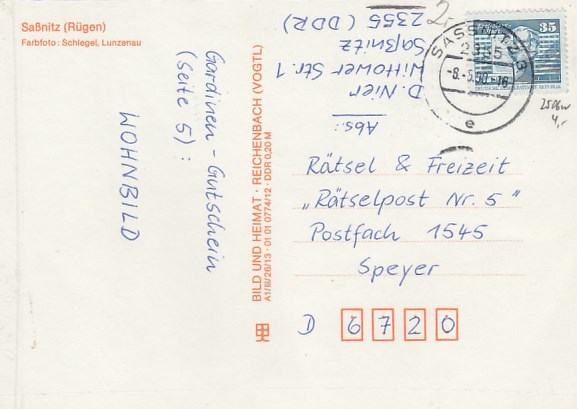 Saßnitz (Rügen)
Farbfoto: Schlegel, Lunzenau
Gardinen - Gutschein
(Seite 5) :
WOHNBILD
BILD UND HEIMAT · REICHENBACH (VOGTL)
A1/B/26/13 · 01 01 0774/12 · DDR 0,20 M
Abs.:
D. Nier
Wittower Str. 1
Saßnitz
2355 (DDR)
SASSNITZ 3
2355
-8.-5.90-16
e
35
2506w
4,-
2,
Rätsel & Freizeit
„Rätselpost Nr. 5"
Postfach 1545
Speyer
D 6720